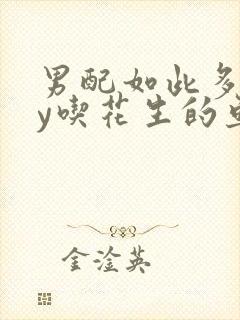 男配如此多
y喫花生的
金淦英